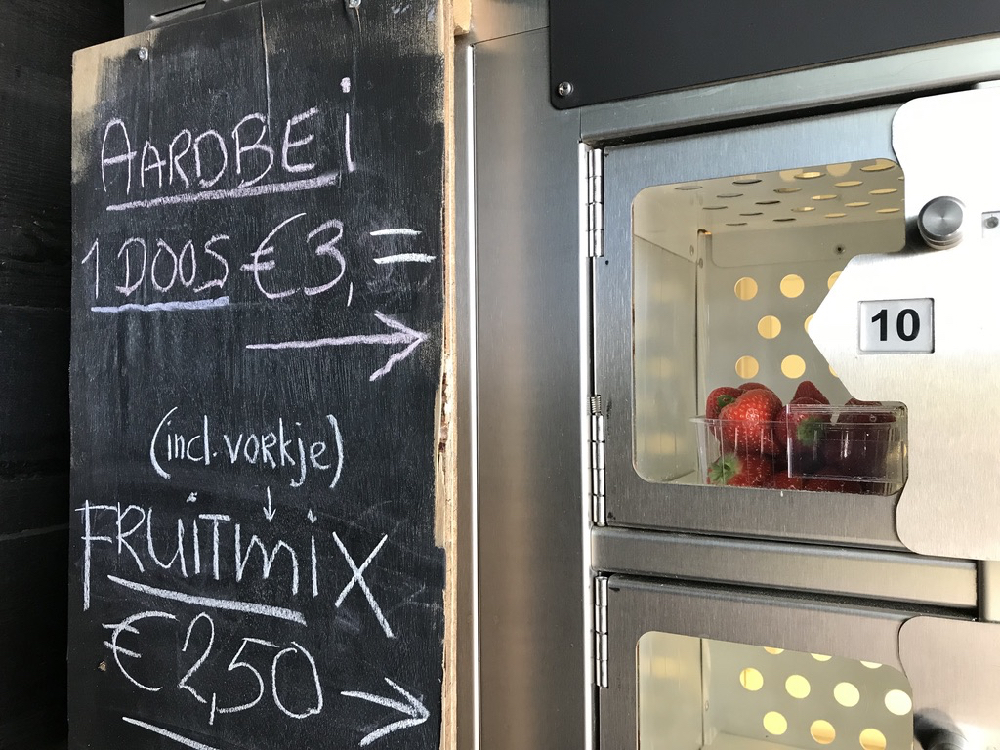 AARDBEi
1 DOOS € 3,=
(incl. vorkje)
FRUiTmix
€ 2,50
10